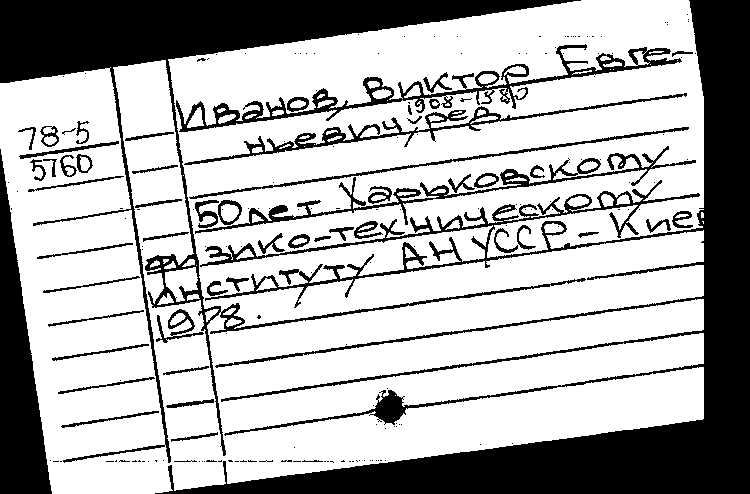 Иванов, Виктор Евге-
1908-1980
ньевич, ред.
78-5
5760
50 лет Харьковскому
физико-техническому
институту АН УССР. - Киев
1978.